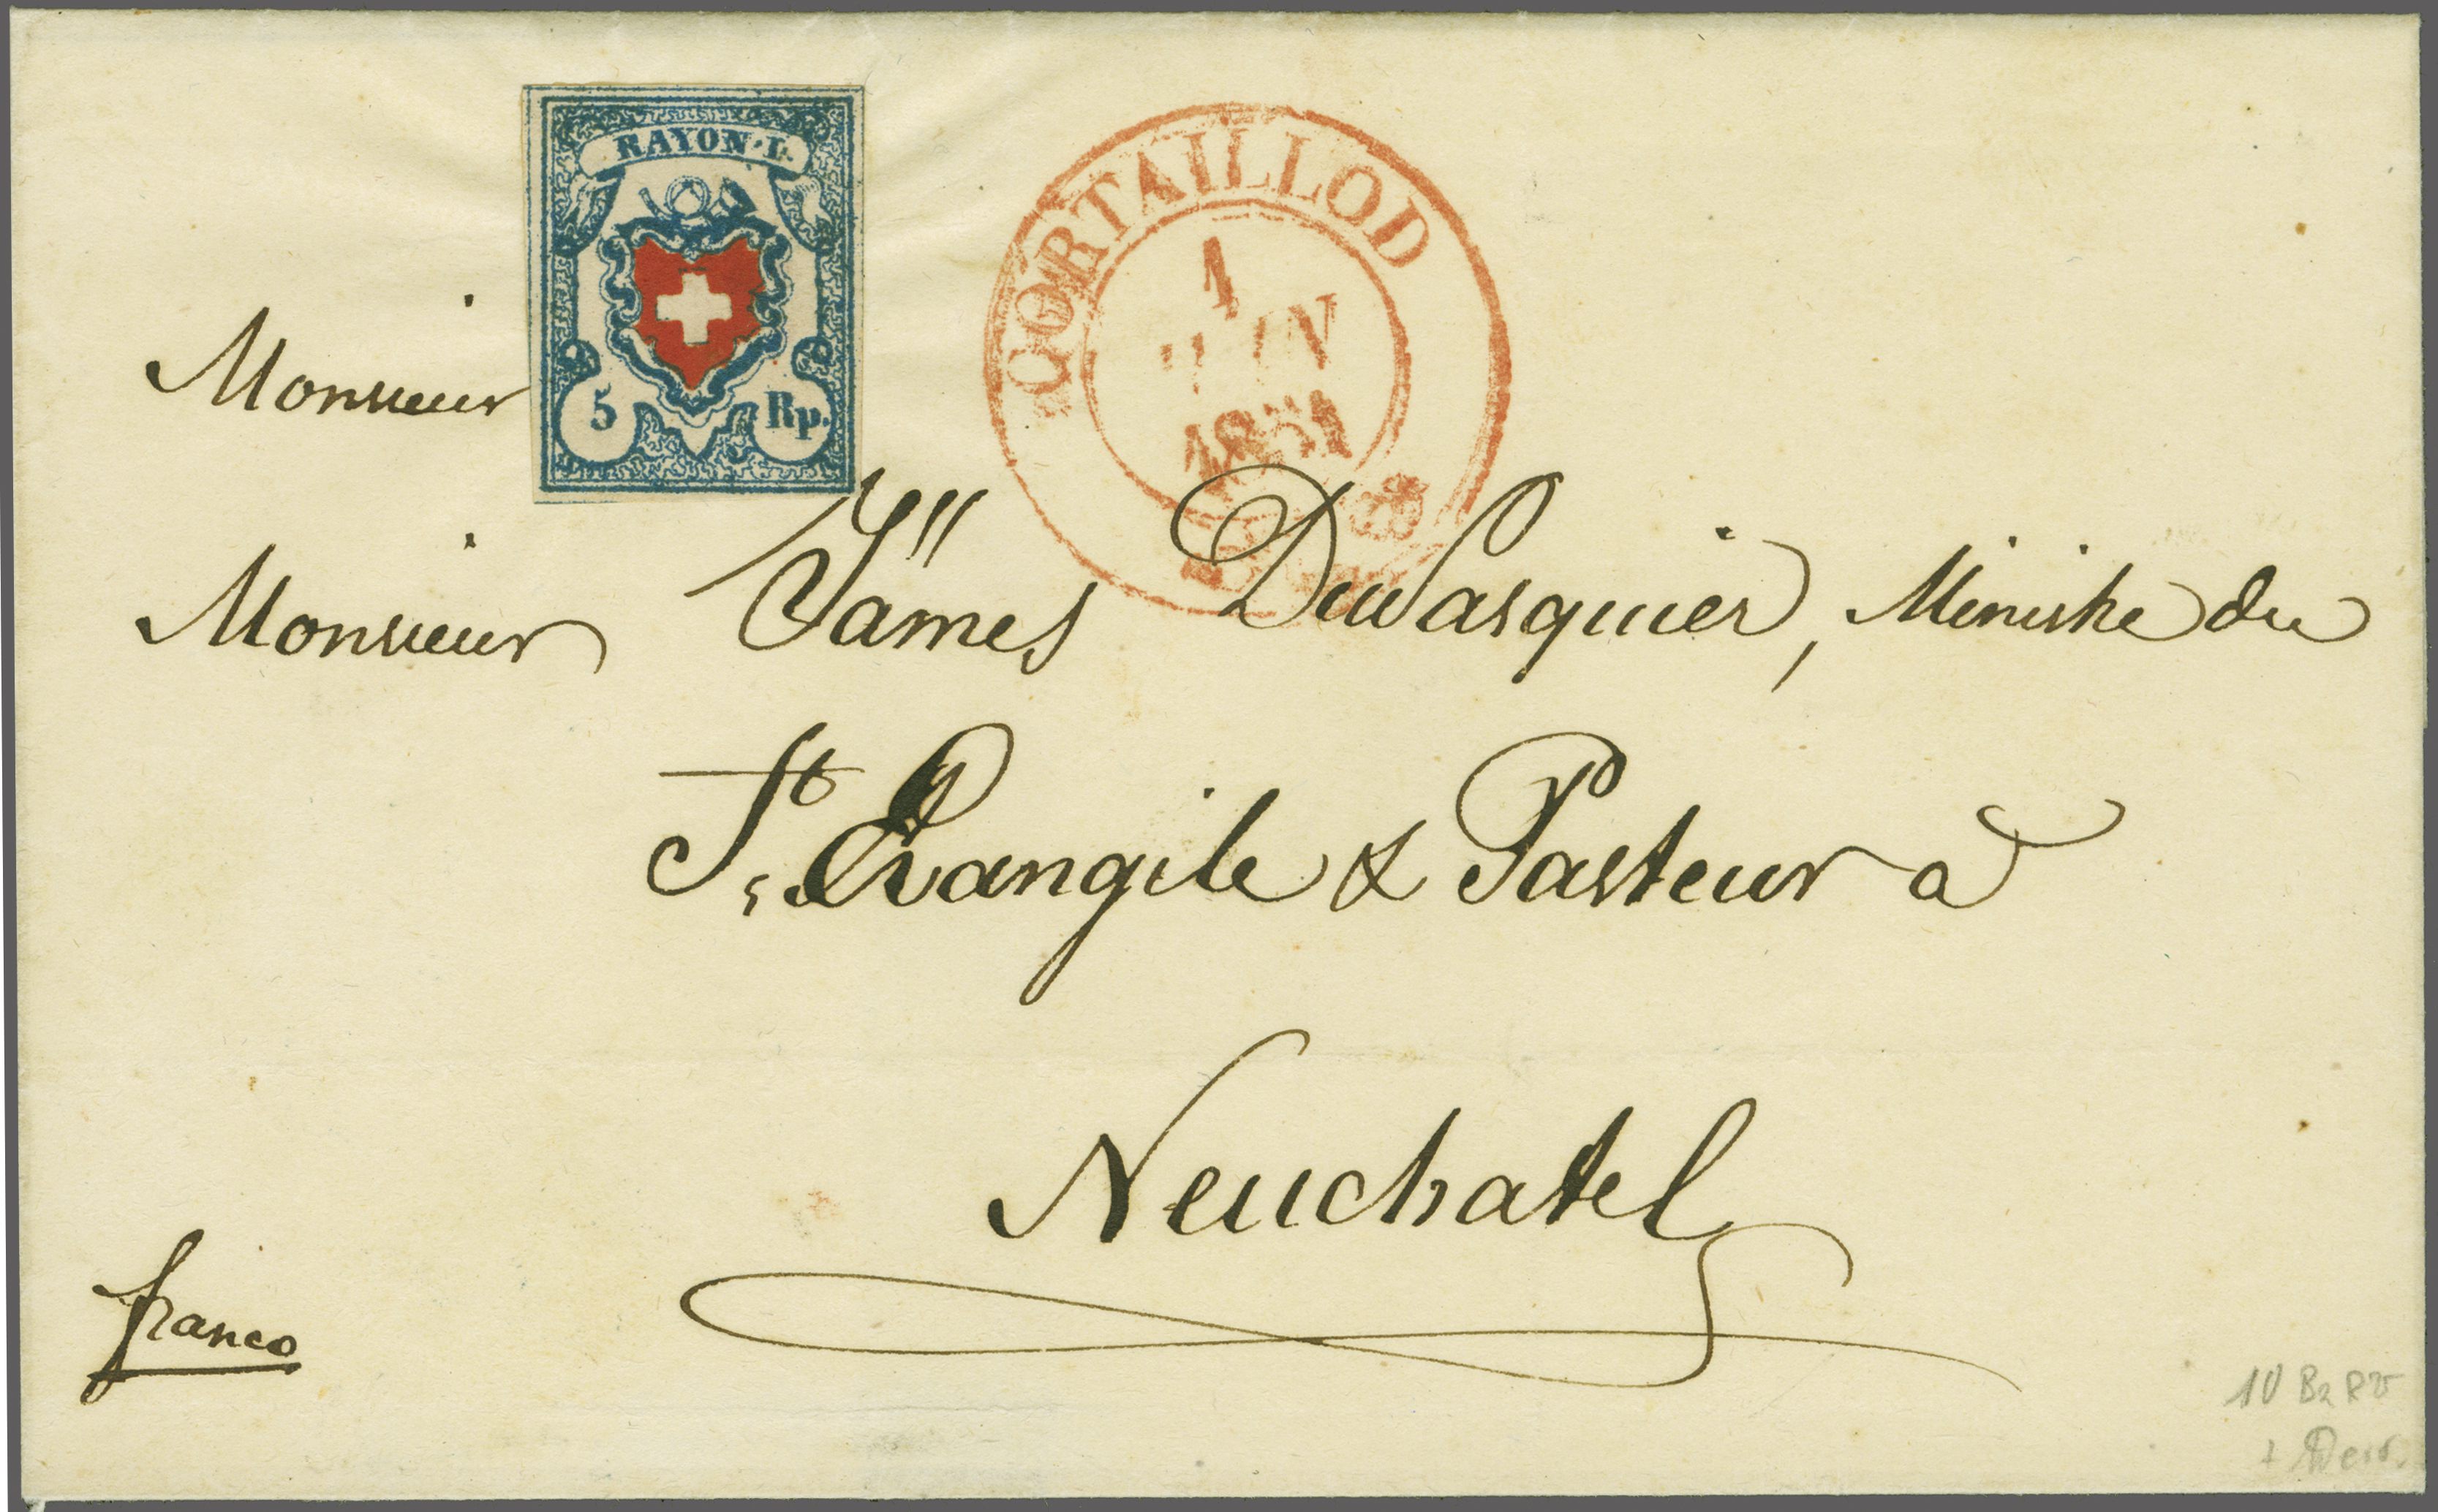 RAYON·I.
5 Rp.
CORTAILLOD
1
JUIN
1851
Monsieur
Monsieur James DuPasquier, Ministre du
St. Evangile & Pasteur à
Neuchatel
franco
10 Ba RV